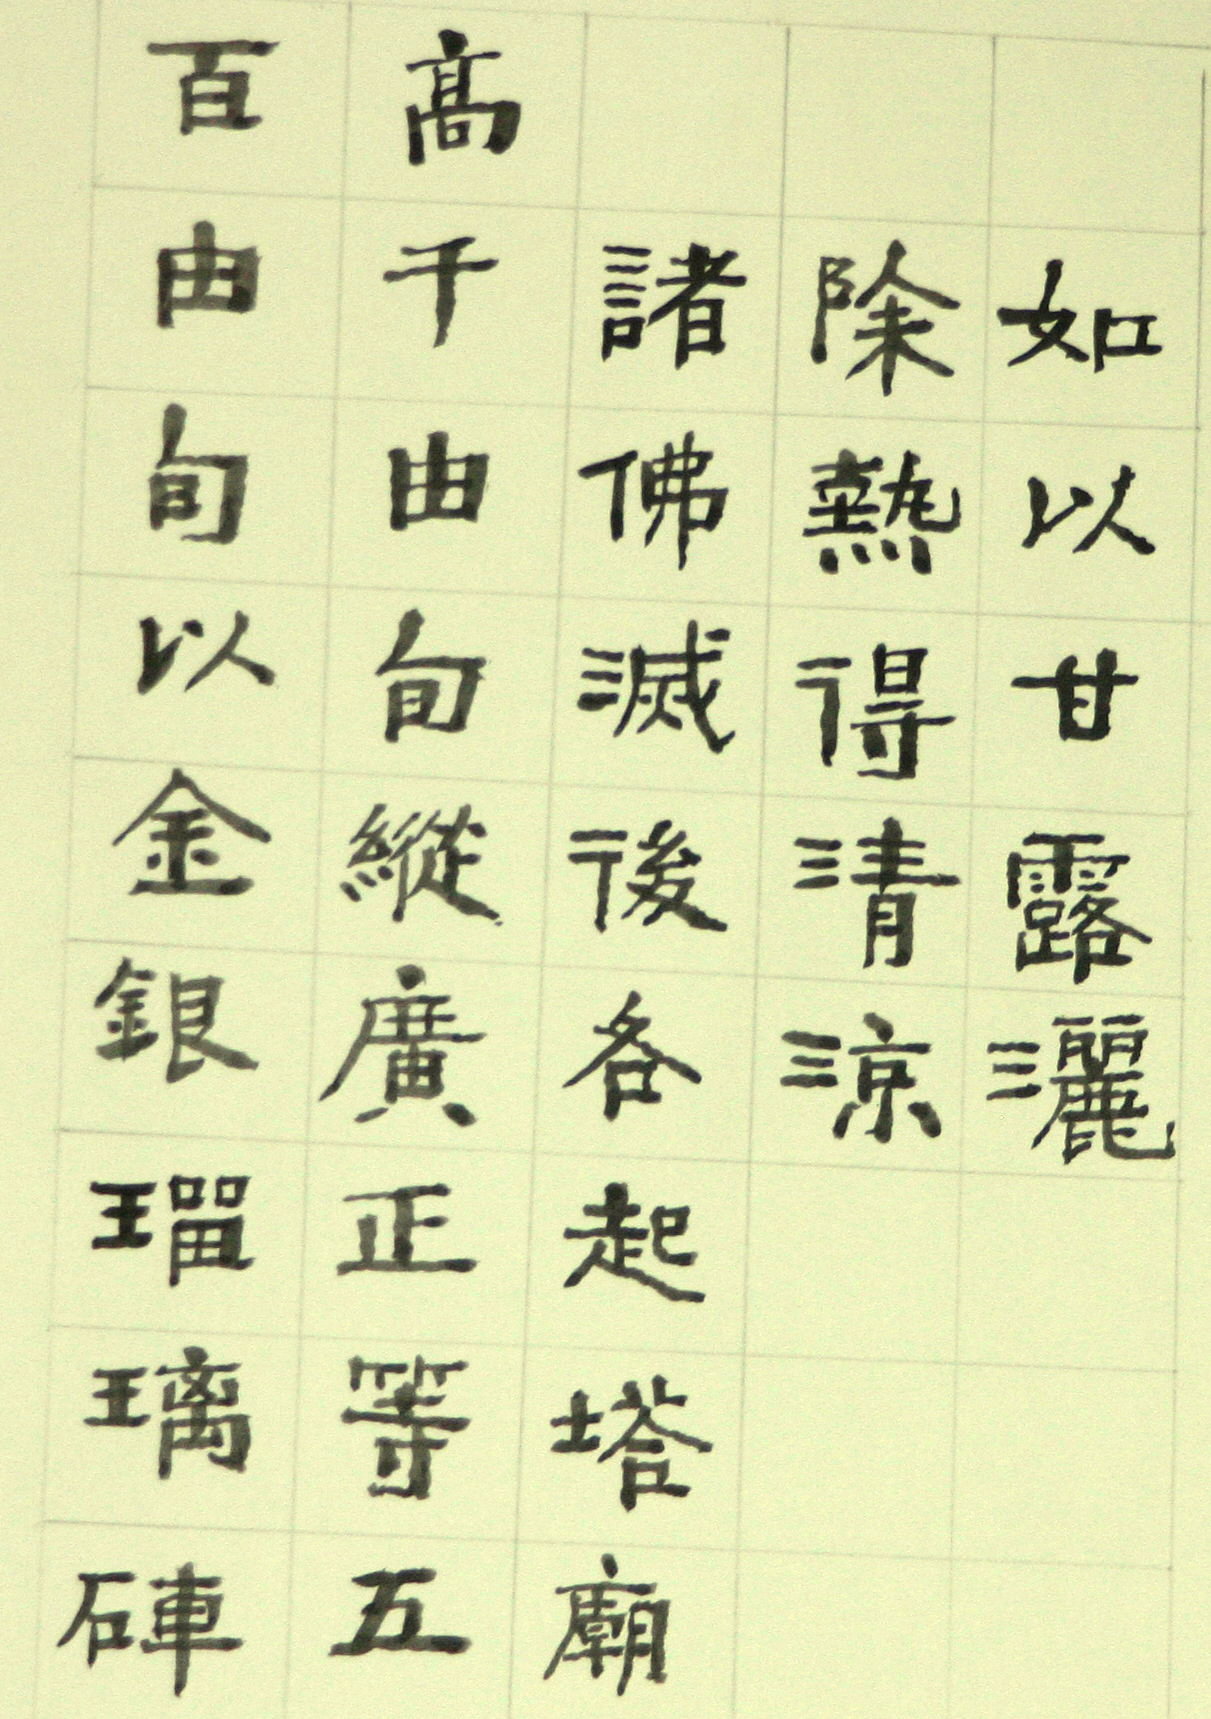 如以甘露灑
除熱得清涼
諸佛滅後各起塔廟
高千由旬縱廣正等五
百由旬以金銀瑠璃硨